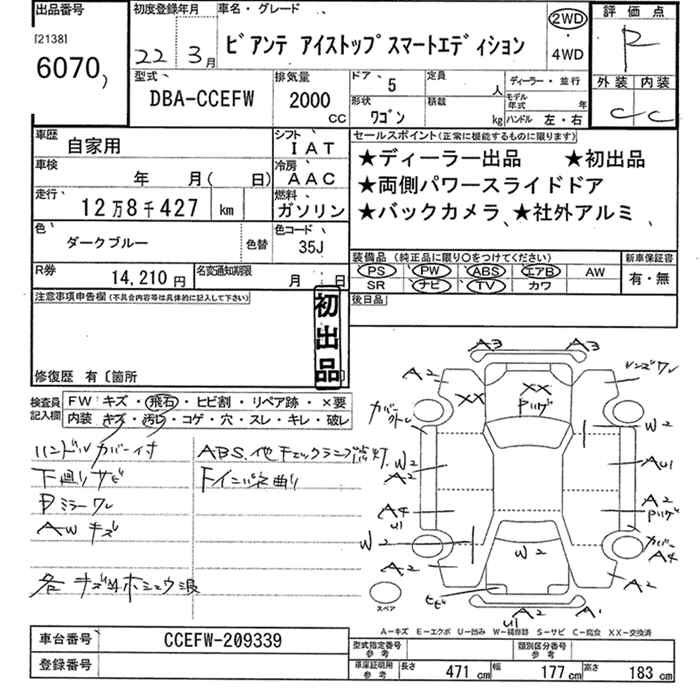 出品番号
[2138]
6070
初度登録年月
22年 3月
車名・グレード
ビアンテ アイストップスマートエディション
2WD
・
4WD
評価点
R
外装 内装
C C
型式
DBA-CCEFW
排気量
2000 CC
ドア 5
形状 ワゴン
定員 人
積載 kg
ディーラー・並行
モデル年式 年
ハンドル 左・右
車歴 自家用
シフト IAT
車検 年 月( 日)
冷房 AAC
走行 12万8千427 km
燃料 ガソリン
色 ダークブルー
色替
色コード 35J
R券 14,210円
名変通知期限 月 日
セールスポイント(正常に機能するものに限ります)
★ディーラー出品 ★初出品
★両側パワースライドドア
★バックカメラ ★社外アルミ
装備品 (純正品に限り○をつけてください)
PS PW ABS エアB AW
SR ナビ TV カワ
新車保証書
有・無
後日品
注意事項申告欄(不具合内容等は具体的に記入して下さい)
初出品
修復歴 有〔箇所 〕
検査員記入欄
FW キズ・飛石・ヒビ割・リペア跡・×要
内装 キズ・汚レ・コゲ・穴・スレ・キレ・破レ
ハンドルカバー付
下廻りサビ
Pミラーワレ
AWキズ
ABS,他チェックランプ点灯
A3 A3
A2
XX
XX
W2
W2
A2
AU1
A4
U1
A2
W2
W2
カバー
A4
A2
ヒビ
A2
U1
A2
スペア
A-キズ E-エクボ U-凹み W-補修跡 S-サビ C-腐食 XX-交換済
車台番号 CCEFW-209339
登録番号
型式指定番号 参考
類別区分番号 参考
車庫証明用 参考
長さ 471 cm 幅 177 cm 高さ 183 cm